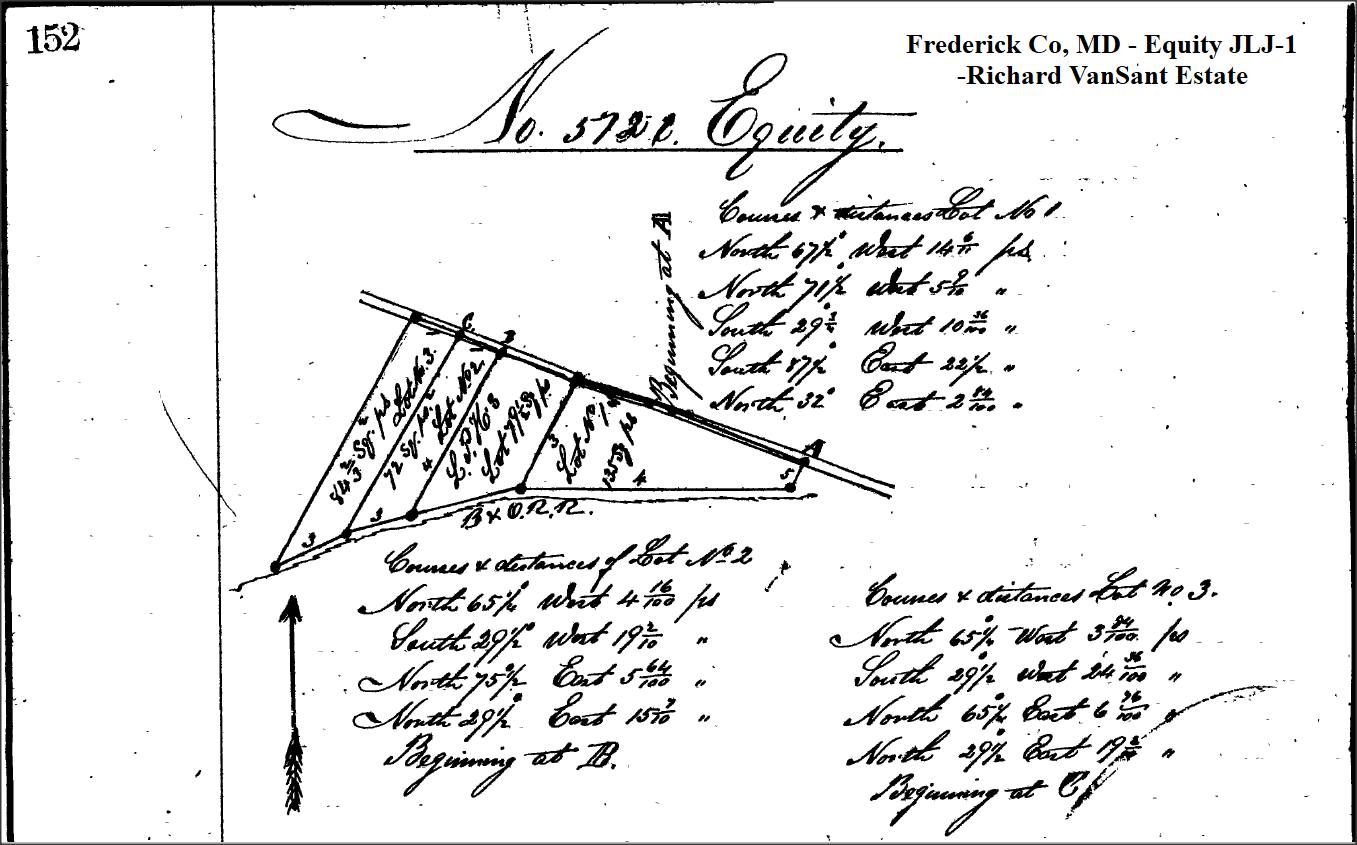 152
Frederick Co, MD - Equity JLJ-1
-Richard VanSant Estate
No. 572 Equity.
Courses & distances Lot No 1
North 67½° West 14 6/11 ps.
North 71½° West 5 9/10 "
South 29¾° West 10 36/100 "
South 87½° East 22½ "
North 32° East 2 84/100 "
Beginning at A
C
B
A
84 2/3 Sq. ps Lot No. 3.
72 Sq. ps. Lot No 2.
L. P. H's
Lot 79½ Sq ps
Lot No 1
135 Sq ps
2
2
3
4
5
4
3
3
B & O. R. R.
Courses & distances of Lot No 2
North 65½° West 4 16/100 ps
South 29½° West 19 2/10 "
North 75½° East 5 64/100 "
North 29½° East 15 7/10 "
Beginning at B.
Courses & distances Lot No 3.
North 65½° West 3 84/100 ps
South 29½° West 24 36/100 "
North 65½° East 6 76/100 "
North 29½° East 19 2/10 "
Beginning at C